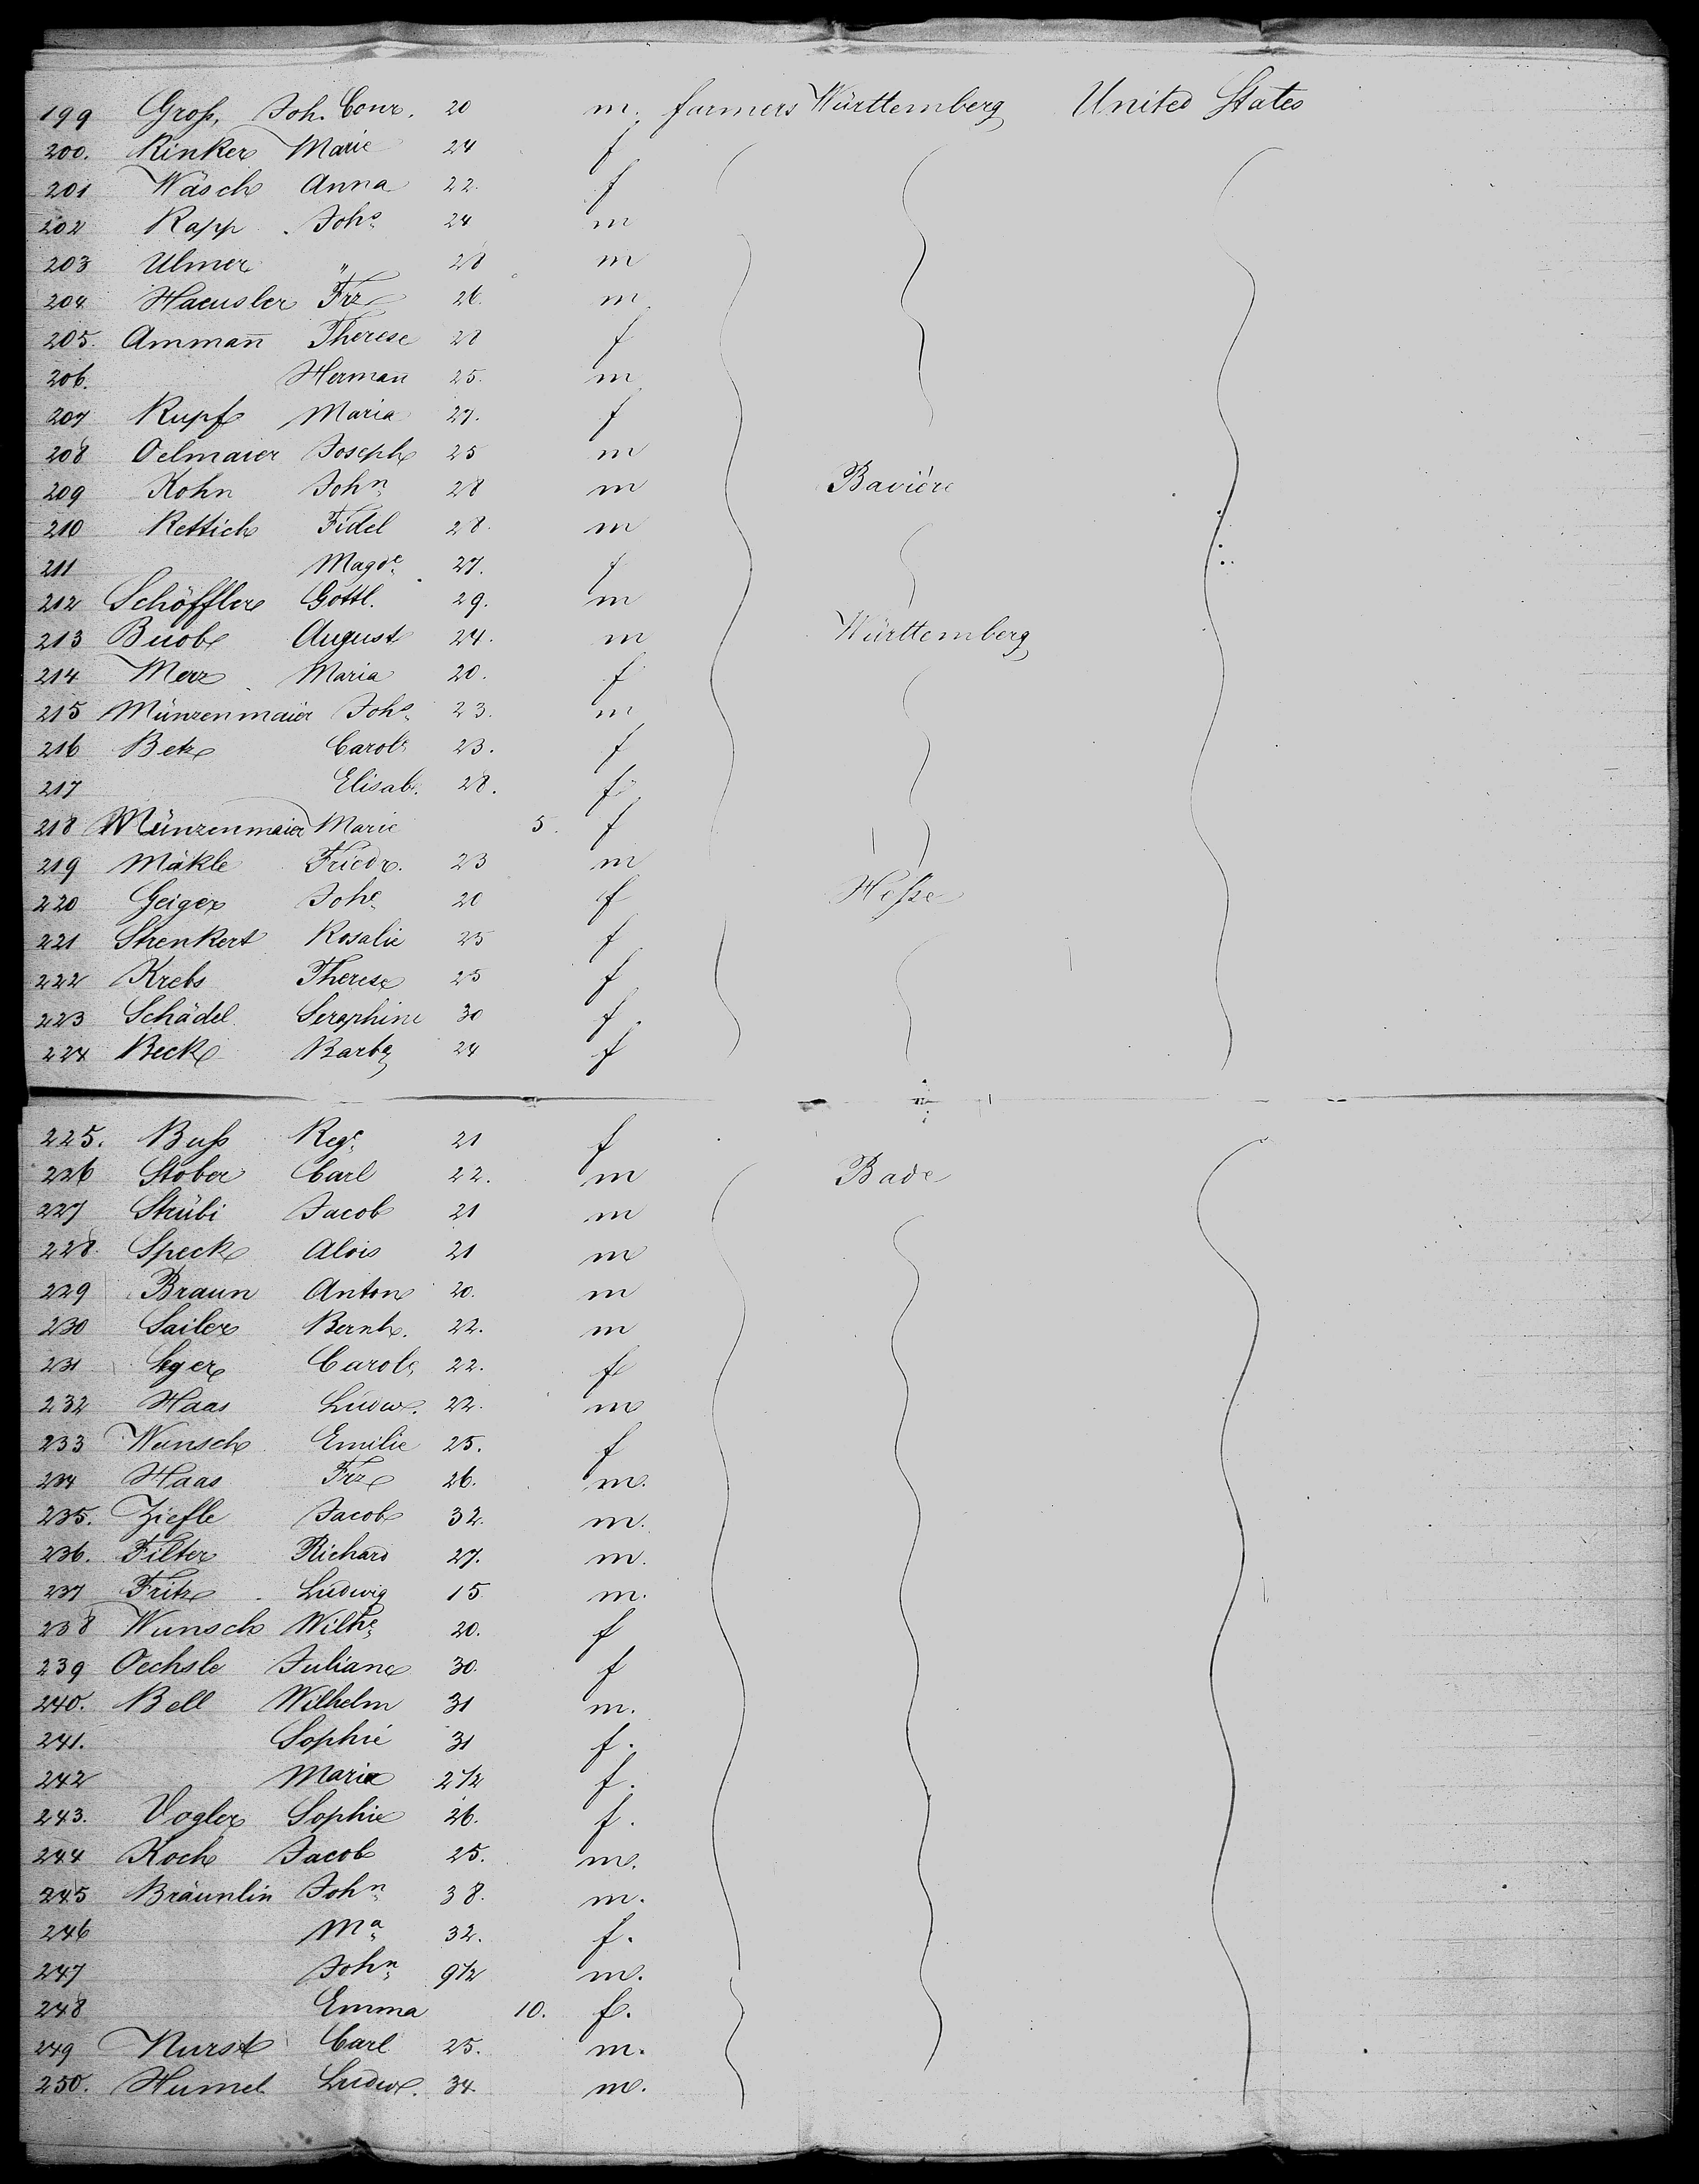 199 Groß, Joh. Conr. 20 m. farmers Württemberg United States
200. Rinker Marie 24 f
201 Wäsch Anna 22. f
202 Rapp Johs 24 m
203 Ulmer " 28 m
204 Haeusler Frz 26. m
205. Ammañ Therese 28 f
206. Hermañ 25. m
207 Rupf Maria 27. f
208 Oelmaier Joseph 25 m
209 Kohn John 28 m Bavière
210 Rettich Fidel 28. m
211 Magde 27. f
212 Schöffler Gottl. 29. m
213 Buob August 24. m Württemberg
214 Merz Maria 20. f
215 Münzenmaier Johs 23. m
216 Betz Carole 23. f
217 Elisab. 28. f
218 Münzenmaier Marie 5. f
219 Mäkle Friedr. 23 m
220 Geiger Johe 20 f Heße
221 Shenkert Rosalie 25 f
222 Krebs Therese 25 f
223 Schädel Seraphine 30 f
224 Beck Barba 24 f
225. Buß Rege 21 f
226 Stober Carl 22. m Bade
227 Strübi Jacob 21 m
228. Speck Alois 21 m
229 Braun Anton 20. m
230 Sailer Bernh. 22. m
231 Eger Carole 22. f
232 Haas Ludw. 22. m
233 Wunsch Emilie 25. f
234 Haas Frz 26. m.
235. Ziefle Jacob 32. m.
236. Filter Richard 27. m.
237 Fritz Ludwig 15 m.
238 Wunsch Wilhe 20. f
239 Oechsle Juliane 30. f
240. Bell Wilhelm 31 m.
241. Sophie 31 f.
242 Maria 2 1/2 f.
243. Vogler Sophie 26. f.
244 Koch Jacob 25. m.
245 Bräunlin John 38. m.
246 Ma 32. f.
247 John 9 1/2 m.
248 Emma 10. f.
249 Nurst Carl 25. m.
250. Humel Ludw. 34. m.